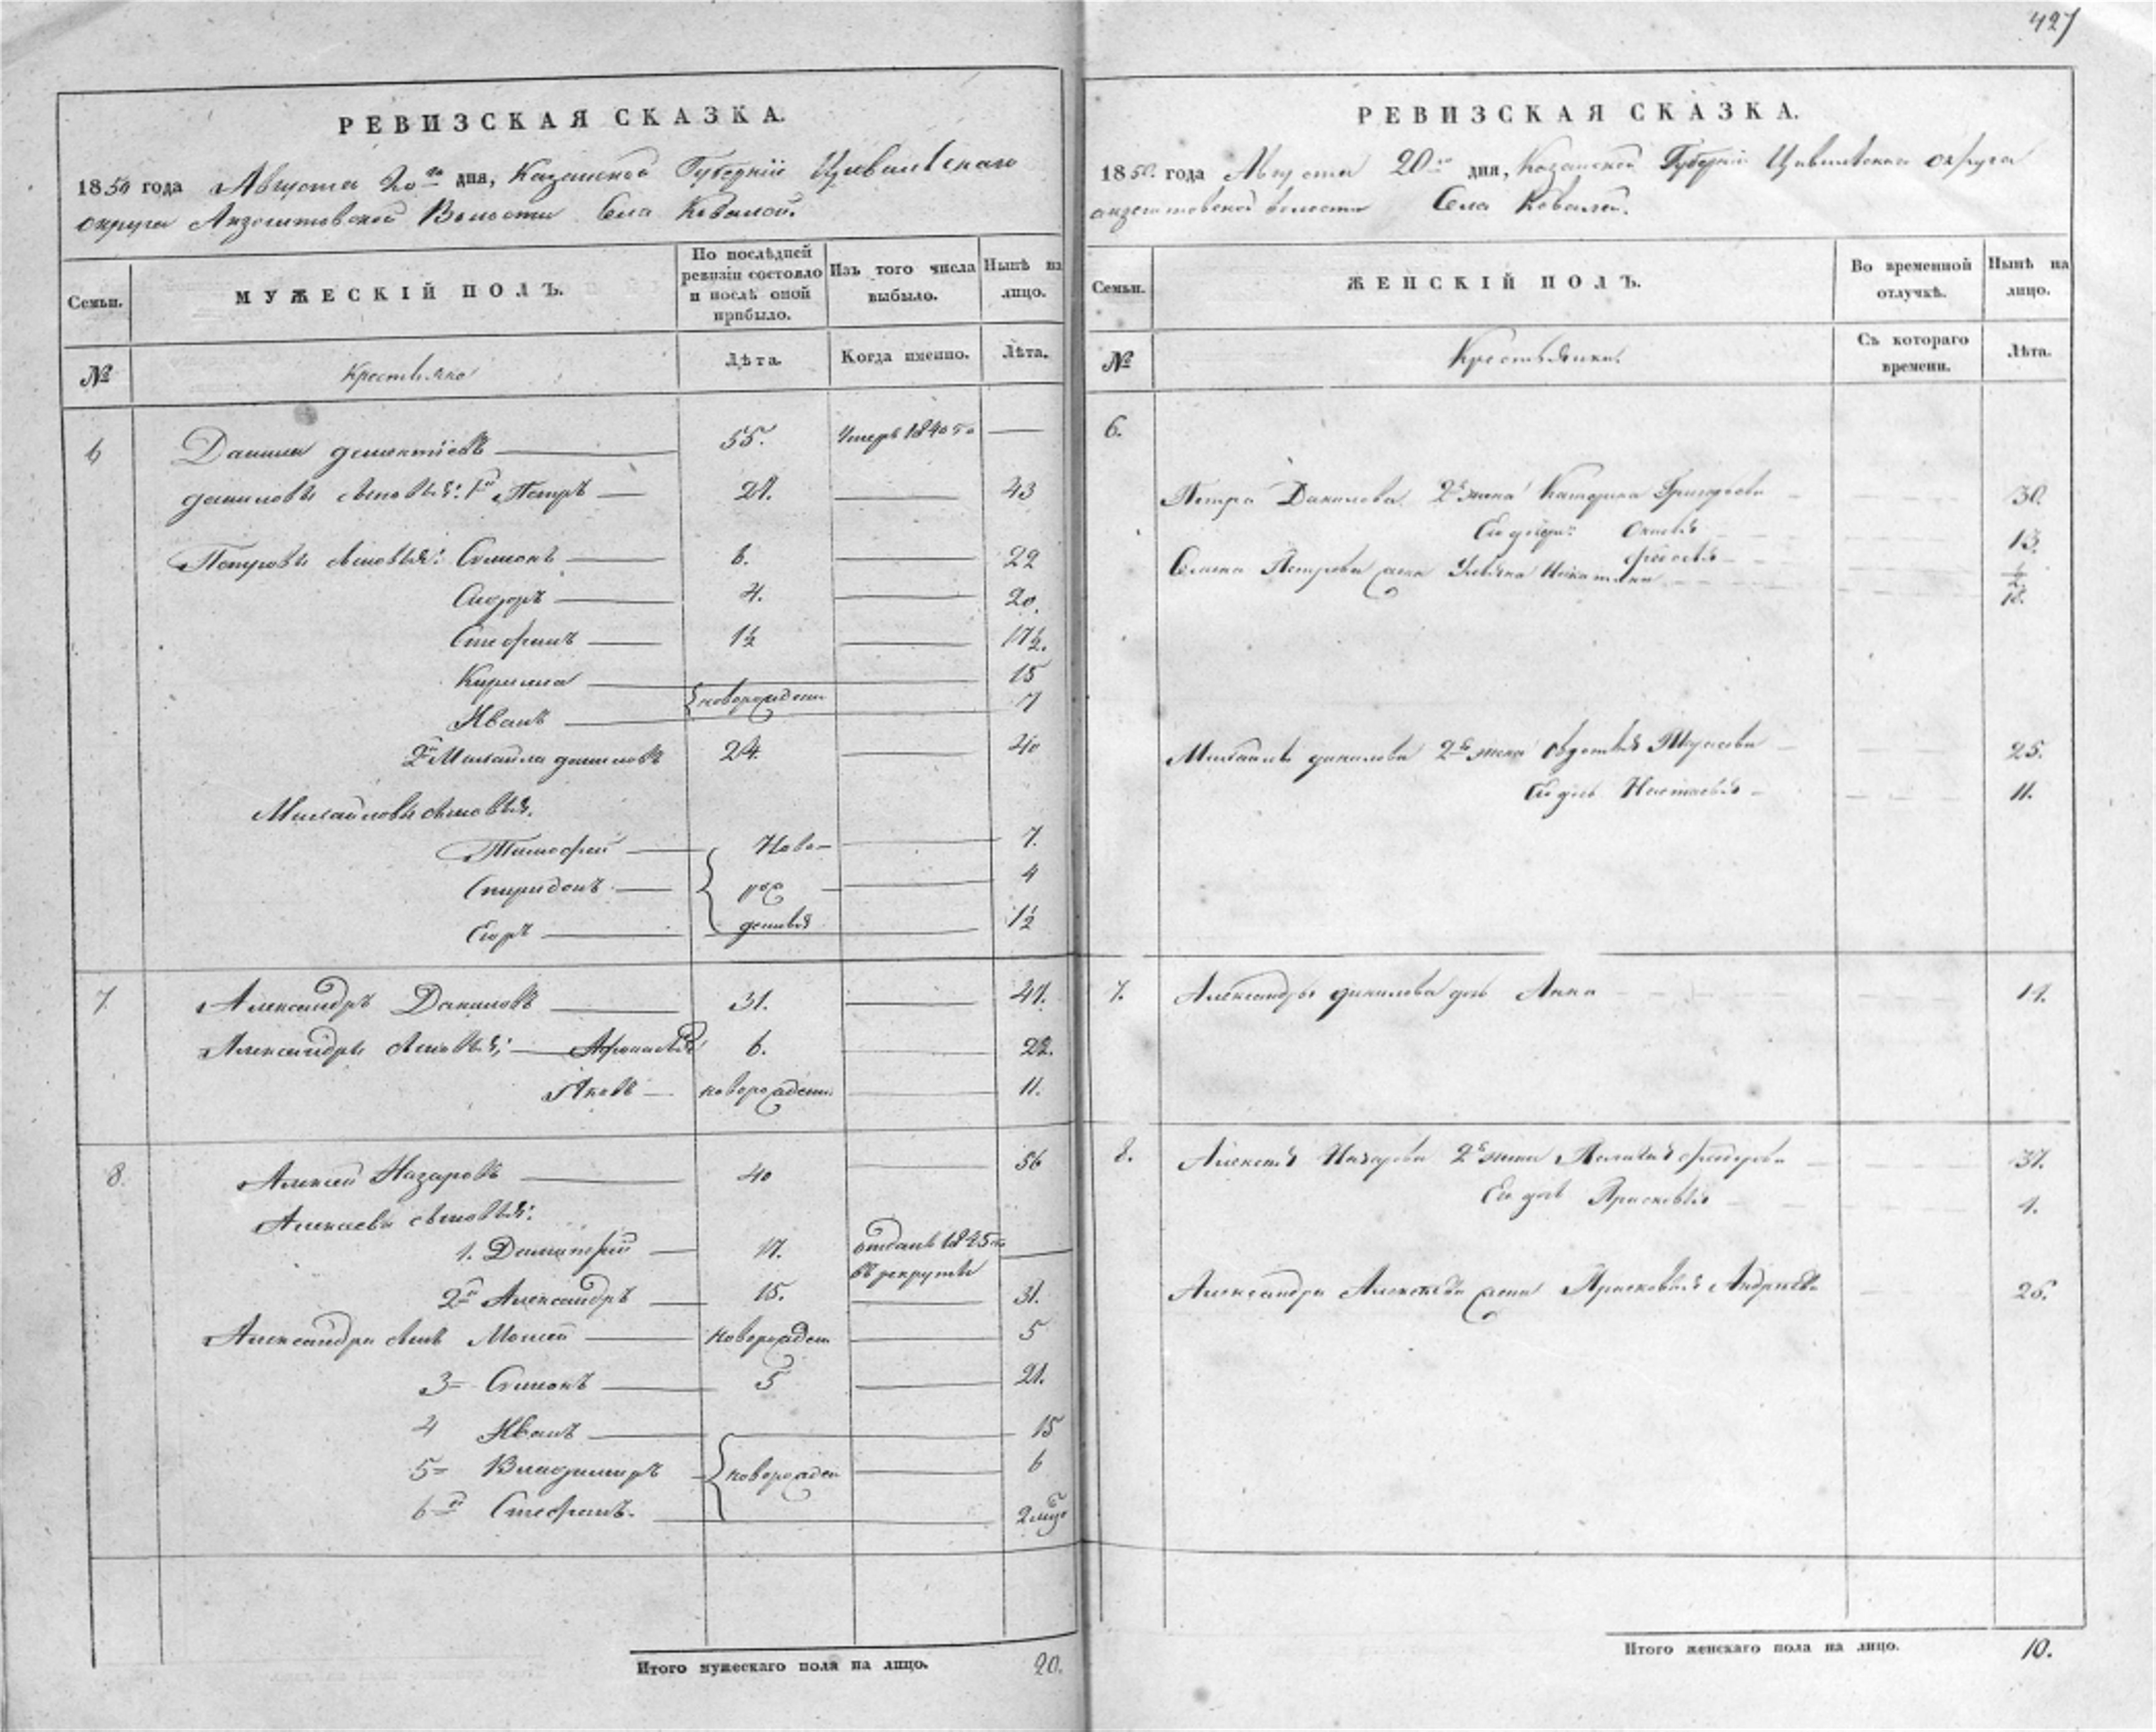 427
РЕВИЗСКАЯ СКАЗКА.
1850 года Августа 20го дня, Казанской Губернiи Цивильскаго
округа Волости Села Ковалей.
Семьи.
МУЖЕСКIЙ ПОЛЪ.
По послѣдней ревизiи состояло и послѣ оной прибыло.
Изъ того числа выбыло.
Нынѣ на лицо.
№
Крестьяне
Лѣта.
Когда именно.
Лѣта.
6 Данила Дементiевъ 55. Умеръ 1840 го
Даниловы сыновья: 1й Петръ 27. 43
Петровы сыновья: Семионъ 6. 22
Сидоръ 4. 20.
Стефанъ 1½ 17½.
Кирилла 15
новорожден
Иванъ 7
2й Михайла Даниловъ 24. 40
Михайловы сыновья.
Тимофей Ново- 7.
Спиридонъ рож 4
Егоръ денныя 1½
7. Александръ Даниловъ 31. 47.
Александры сыновья: 6. 22.
Яковъ новорожден. 11.
8. Алексей Назаровъ 40 56
Алексевы сыновья:
1. Димитрiй 17. отданъ 1845 го
въ рекруты
2й Александръ 15. 31.
Александра сынъ Мосей новорожден 5
3 Семионъ 5 21.
4 Иванъ 15
5 Владимиръ новорожден 6
6й Стефанъ. 2 мцо
Итого мужескаго пола на лицо. 20.
РЕВИЗСКАЯ СКАЗКА.
1850. года Августа 20го дня, Казанской Губернiи Цивильскаго округа
волости Села Ковалей.
Семьи.
ЖЕНСКIЙ ПОЛЪ.
Во временной отлучкѣ.
Нынѣ на лицо.
№
Крестьянки.
Съ котораго времени.
Лѣта.
6.
Петра Данилова 2я жена Катерина Григорьева 30.
Ея дочери: 13.
Федосья ½
Семиона Петрова жена Ульяна 18.
Михайлы Данилова 2я жена Авдотья 25.
Ея дочь Настасья 11.
7. Александры Данилова дочь Анна 14.
8. Алексея Назарова 2я жена Пелагея Федорова 37.
Ея дочь Прасковья 4.
Александра Алексеева жена Прасковья Андреева 26.
Итого женскаго пола на лицо. 10.